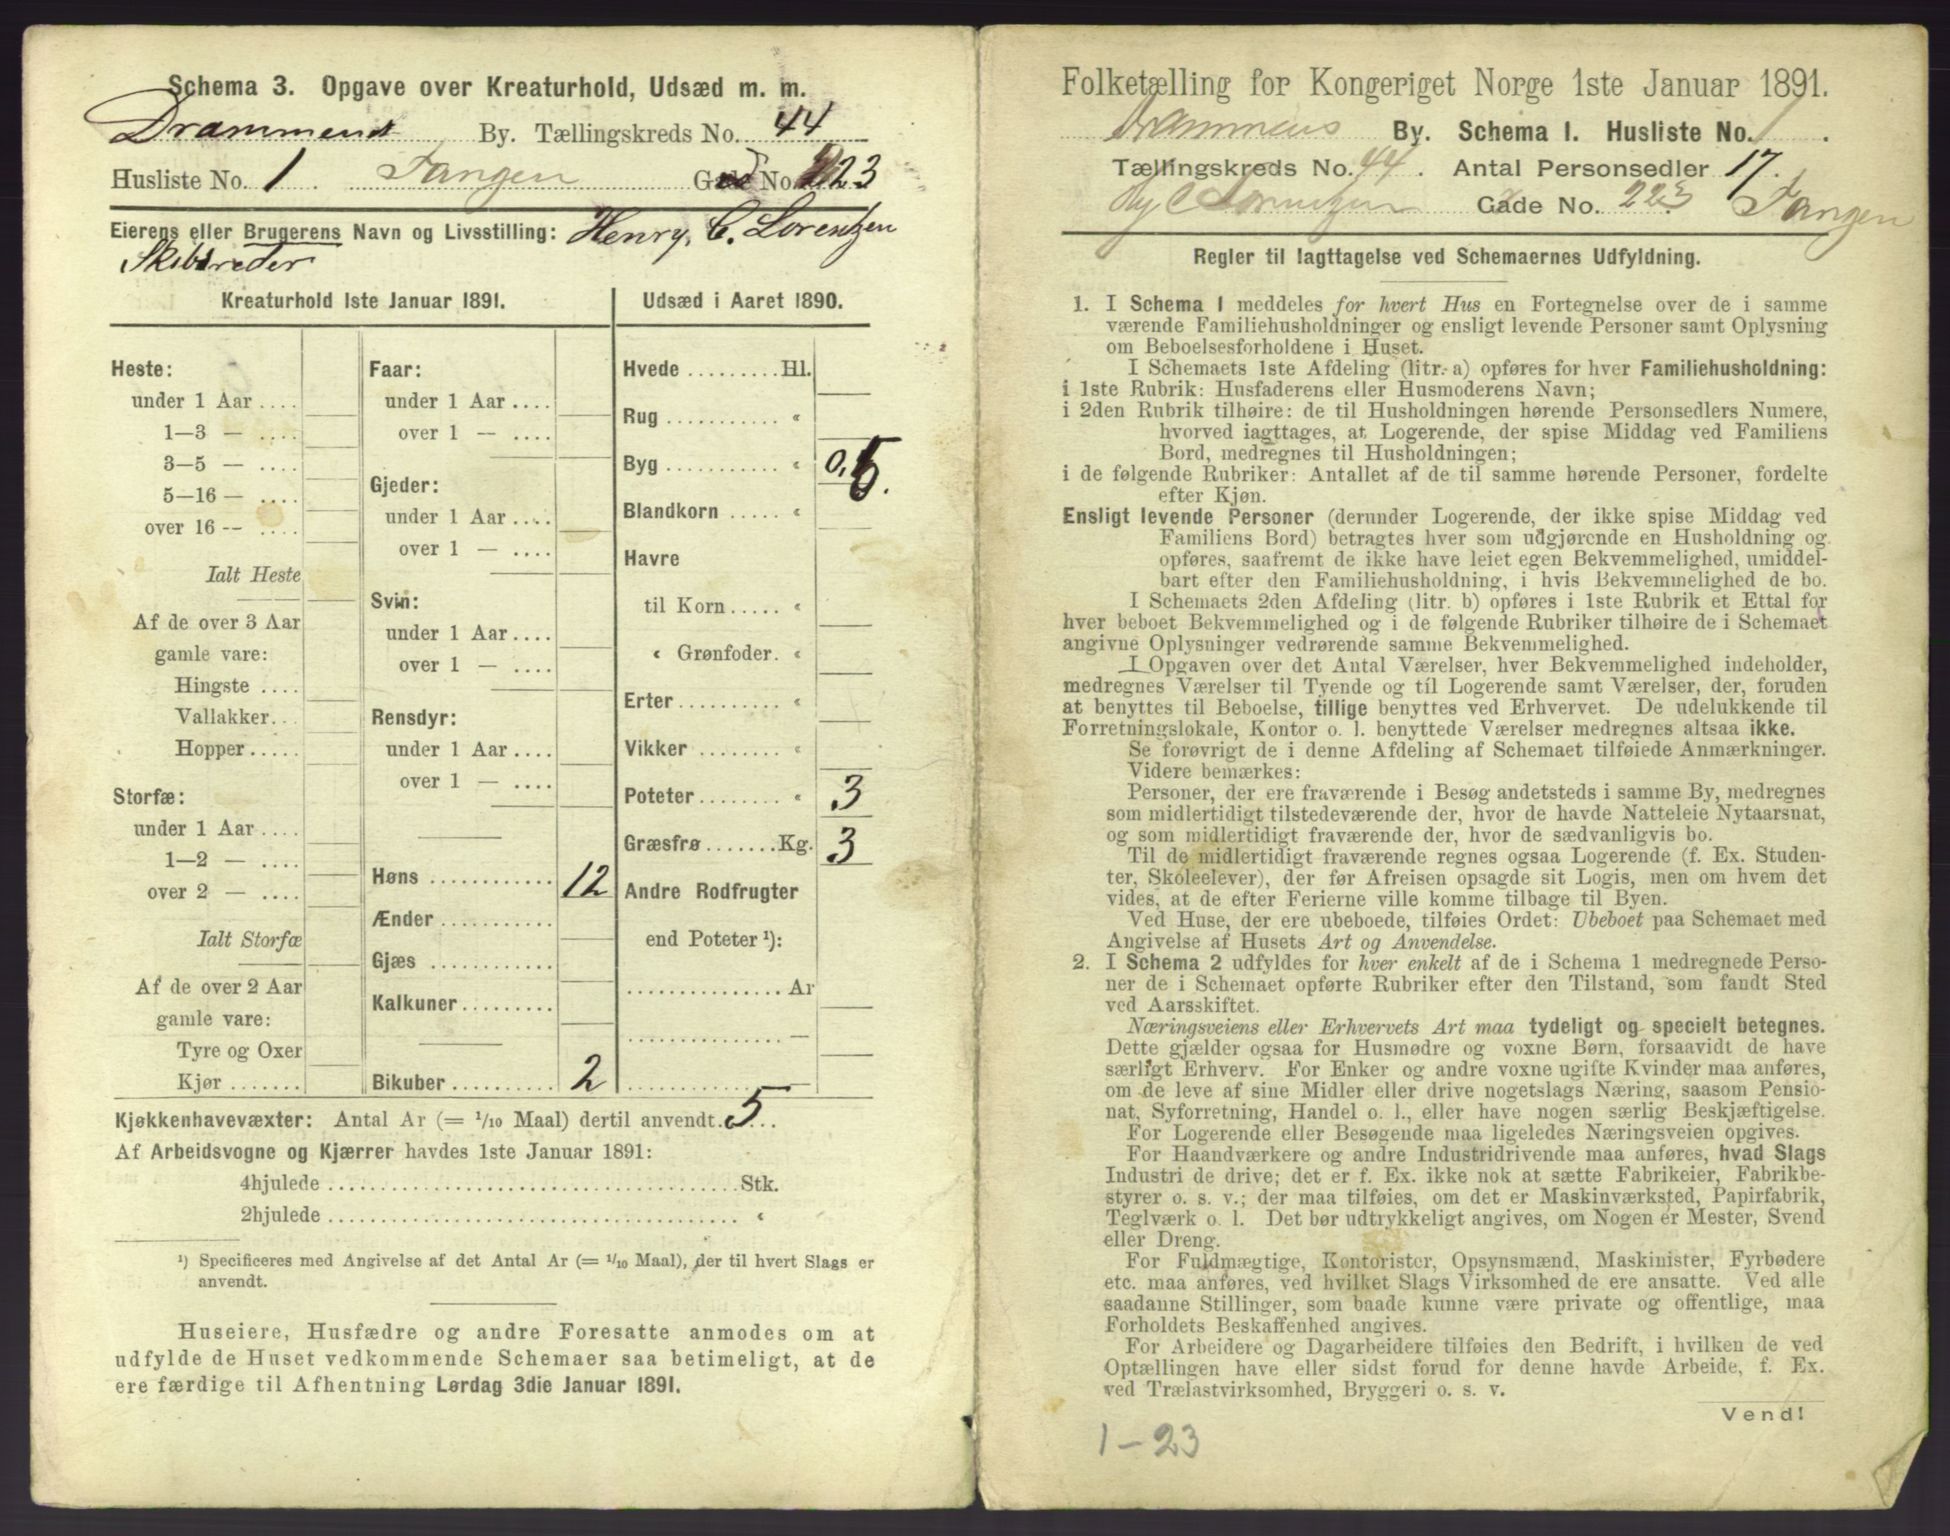 Schema 3. Opgave over Kreaturhold, Udsæd m. m.
Drammens By. Tællingskreds No. 44
Husliste No. 1 Tangen Gade No. 223
Eierens eller Brugerens Navn og Livsstilling: Henry, C. Lorentzen
Skibsreder
Kreaturhold 1ste Januar 1891.
Heste:
under 1 Aar ....
1—3 — ....
3—5 — ....
5—16 — ....
over 16 -- ....
Ialt Heste
Af de over 3 Aar
gamle vare:
Hingste ....
Vallakker...
Hopper.....
Storfæ:
under 1 Aar ....
1—2 — ....
over 2 — ....
Ialt Storfæ
Af de over 2 Aar
gamle vare:
Tyre og Oxer
Kjør .......
Faar:
under 1 Aar ....
over 1 — ....
Gjeder:
under 1 Aar ....
over 1 — ....
Svin:
under 1 Aar ....
over 1 — ....
Rensdyr:
under 1 Aar ....
over 1 — ....
Høns ............ 12
Ænder ...........
Gjæs ............
Kalkuner.........
Bikuber .......... 2
Udsæd i Aaret 1890.
Hvede .........Hl.
Rug ........... «
Byg ........... « 0,5.
Blandkorn ..... «
Havre
til Korn ..... «
« Grønfoder. «
Erter.......... «
Vikker ........ «
Poteter........ « 3
Græsfrø .......Kg. 3
Andre Rodfrugter
end Poteter ¹):
...............Ar
...............—
...............—
Kjøkkenhavevæxter: Antal Ar (= 1/10 Maal) dertil anvendt. 5...
Af Arbeidsvogne og Kjærrer havdes 1ste Januar 1891:
4hjulede ........................................Stk.
2hjulede ........................................ «
¹) Specificeres med Angivelse af det Antal Ar (= 1/10 Maal), der til hvert Slags er
anvendt.
Huseiere, Husfædre og andre Foresatte anmodes om at
udfylde de Huset vedkommende Schemaer saa betimeligt, at de
ere færdige til Afhentning Lørdag 3die Januar 1891.
Folketælling for Kongeriget Norge 1ste Januar 1891.
Drammens By. Schema I. Husliste No. 1.
Tællingskreds No. 44. Antal Personsedler 17.
Hy C Lorentzen Gade No. 223 Tangen
Regler til Iagttagelse ved Schemaernes Udfyldning.
1. I Schema 1 meddeles for hvert Hus en Fortegnelse over de i samme
værende Familiehusholdninger og ensligt levende Personer samt Oplysning
om Beboelsesforholdene i Huset.
I Schemaets 1ste Afdeling (litr. a) opføres for hver Familiehusholdning:
i 1ste Rubrik: Husfaderens eller Husmoderens Navn;
i 2den Rubrik tilhøire: de til Husholdningen hørende Personsedlers Numere,
hvorved iagttages, at Logerende, der spise Middag ved Familiens
Bord, medregnes til Husholdningen;
i de følgende Rubriker: Antallet af de til samme hørende Personer, fordelte
efter Kjøn.
Ensligt levende Personer (derunder Logerende, der ikke spise Middag ved
Familiens Bord) betragtes hver som udgjørende en Husholdning og
opføres, saafremt de ikke have leiet egen Bekvemmelighed, umiddel-
bart efter den Familiehusholdning, i hvis Bekvemmelighed de bo.
I Schemaets 2den Afdeling (litr. b) opføres i 1ste Rubrik et Ettal for
hver beboet Bekvemmelighed og i de følgende Rubriker tilhøire de i Schemaet
angivne Oplysninger vedrørende samme Bekvemmelighed.
I Opgaven over det Antal Værelser, hver Bekvemmelighed indeholder,
medregnes Værelser til Tyende og til Logerende samt Værelser, der, foruden
at benyttes til Beboelse, tillige benyttes ved Erhvervet. De udelukkende til
Forretningslokale, Kontor o. l. benyttede Værelser medregnes altsaa ikke.
Se forøvrigt de i denne Afdeling af Schemaet tilføiede Anmærkninger.
Videre bemærkes:
Personer, der ere fraværende i Besøg andetsteds i samme By, medregnes
som midlertidigt tilstedeværende der, hvor de havde Natteleie Nytaarsnat,
og som midlertidigt fraværende der, hvor de sædvanligvis bo.
Til de midlertidigt fraværende regnes ogsaa Logerende (f. Ex. Studen-
ter, Skoleelever), der før Afreisen opsagde sit Logis, men om hvem det
vides, at de efter Ferierne ville komme tilbage til Byen.
Ved Huse, der ere ubeboede, tilføies Ordet: Ubeboet paa Schemaet med
Angivelse af Husets Art og Anvendelse.
2. I Schema 2 udfyldes for hver enkelt af de i Schema 1 medregnede Perso-
ner de i Schemaet opførte Rubriker efter den Tilstand, som fandt Sted
ved Aarsskiftet.
Næringsveiens eller Erhvervets Art maa tydeligt og specielt betegnes.
Dette gjælder ogsaa for Husmødre og voxne Børn, forsaavidt de have
særligt Erhverv. For Enker og andre voxne ugifte Kvinder maa anføres,
om de leve af sine Midler eller drive nogetslags Næring, saasom Pensio-
nat, Syforretning, Handel o. l., eller have nogen særlig Beskjæftigelse.
For Logerende eller Besøgende maa ligeledes Næringsveien opgives.
For Haandværkere og andre Industridrivende maa anføres, hvad Slags
Industri de drive; det er f. Ex. ikke nok at sætte Fabrikeier, Fabrikbe-
styrer o. s. v.; der maa tilføies, om det er Maskinværksted, Papirfabrik,
Teglværk o. l. Det bør udtrykkeligt angives, om Nogen er Mester, Svend
eller Dreng.
For Fuldmægtige, Kontorister, Opsynsmænd, Maskinister, Fyrbødere
etc. maa anføres, ved hvilket Slags Virksomhed de ere ansatte. Ved alle
saadanne Stillinger, som baade kunne være private og offentlige, maa
Forholdets Beskaffenhed angives.
For Arbeidere og Dagarbeidere tilføies den Bedrift, i hvilken de ved
Optællingen have eller sidst forud for denne havde Arbeide, f. Ex.
ved Trælastvirksomhed, Bryggeri o. s. v.
Vend!
1-23